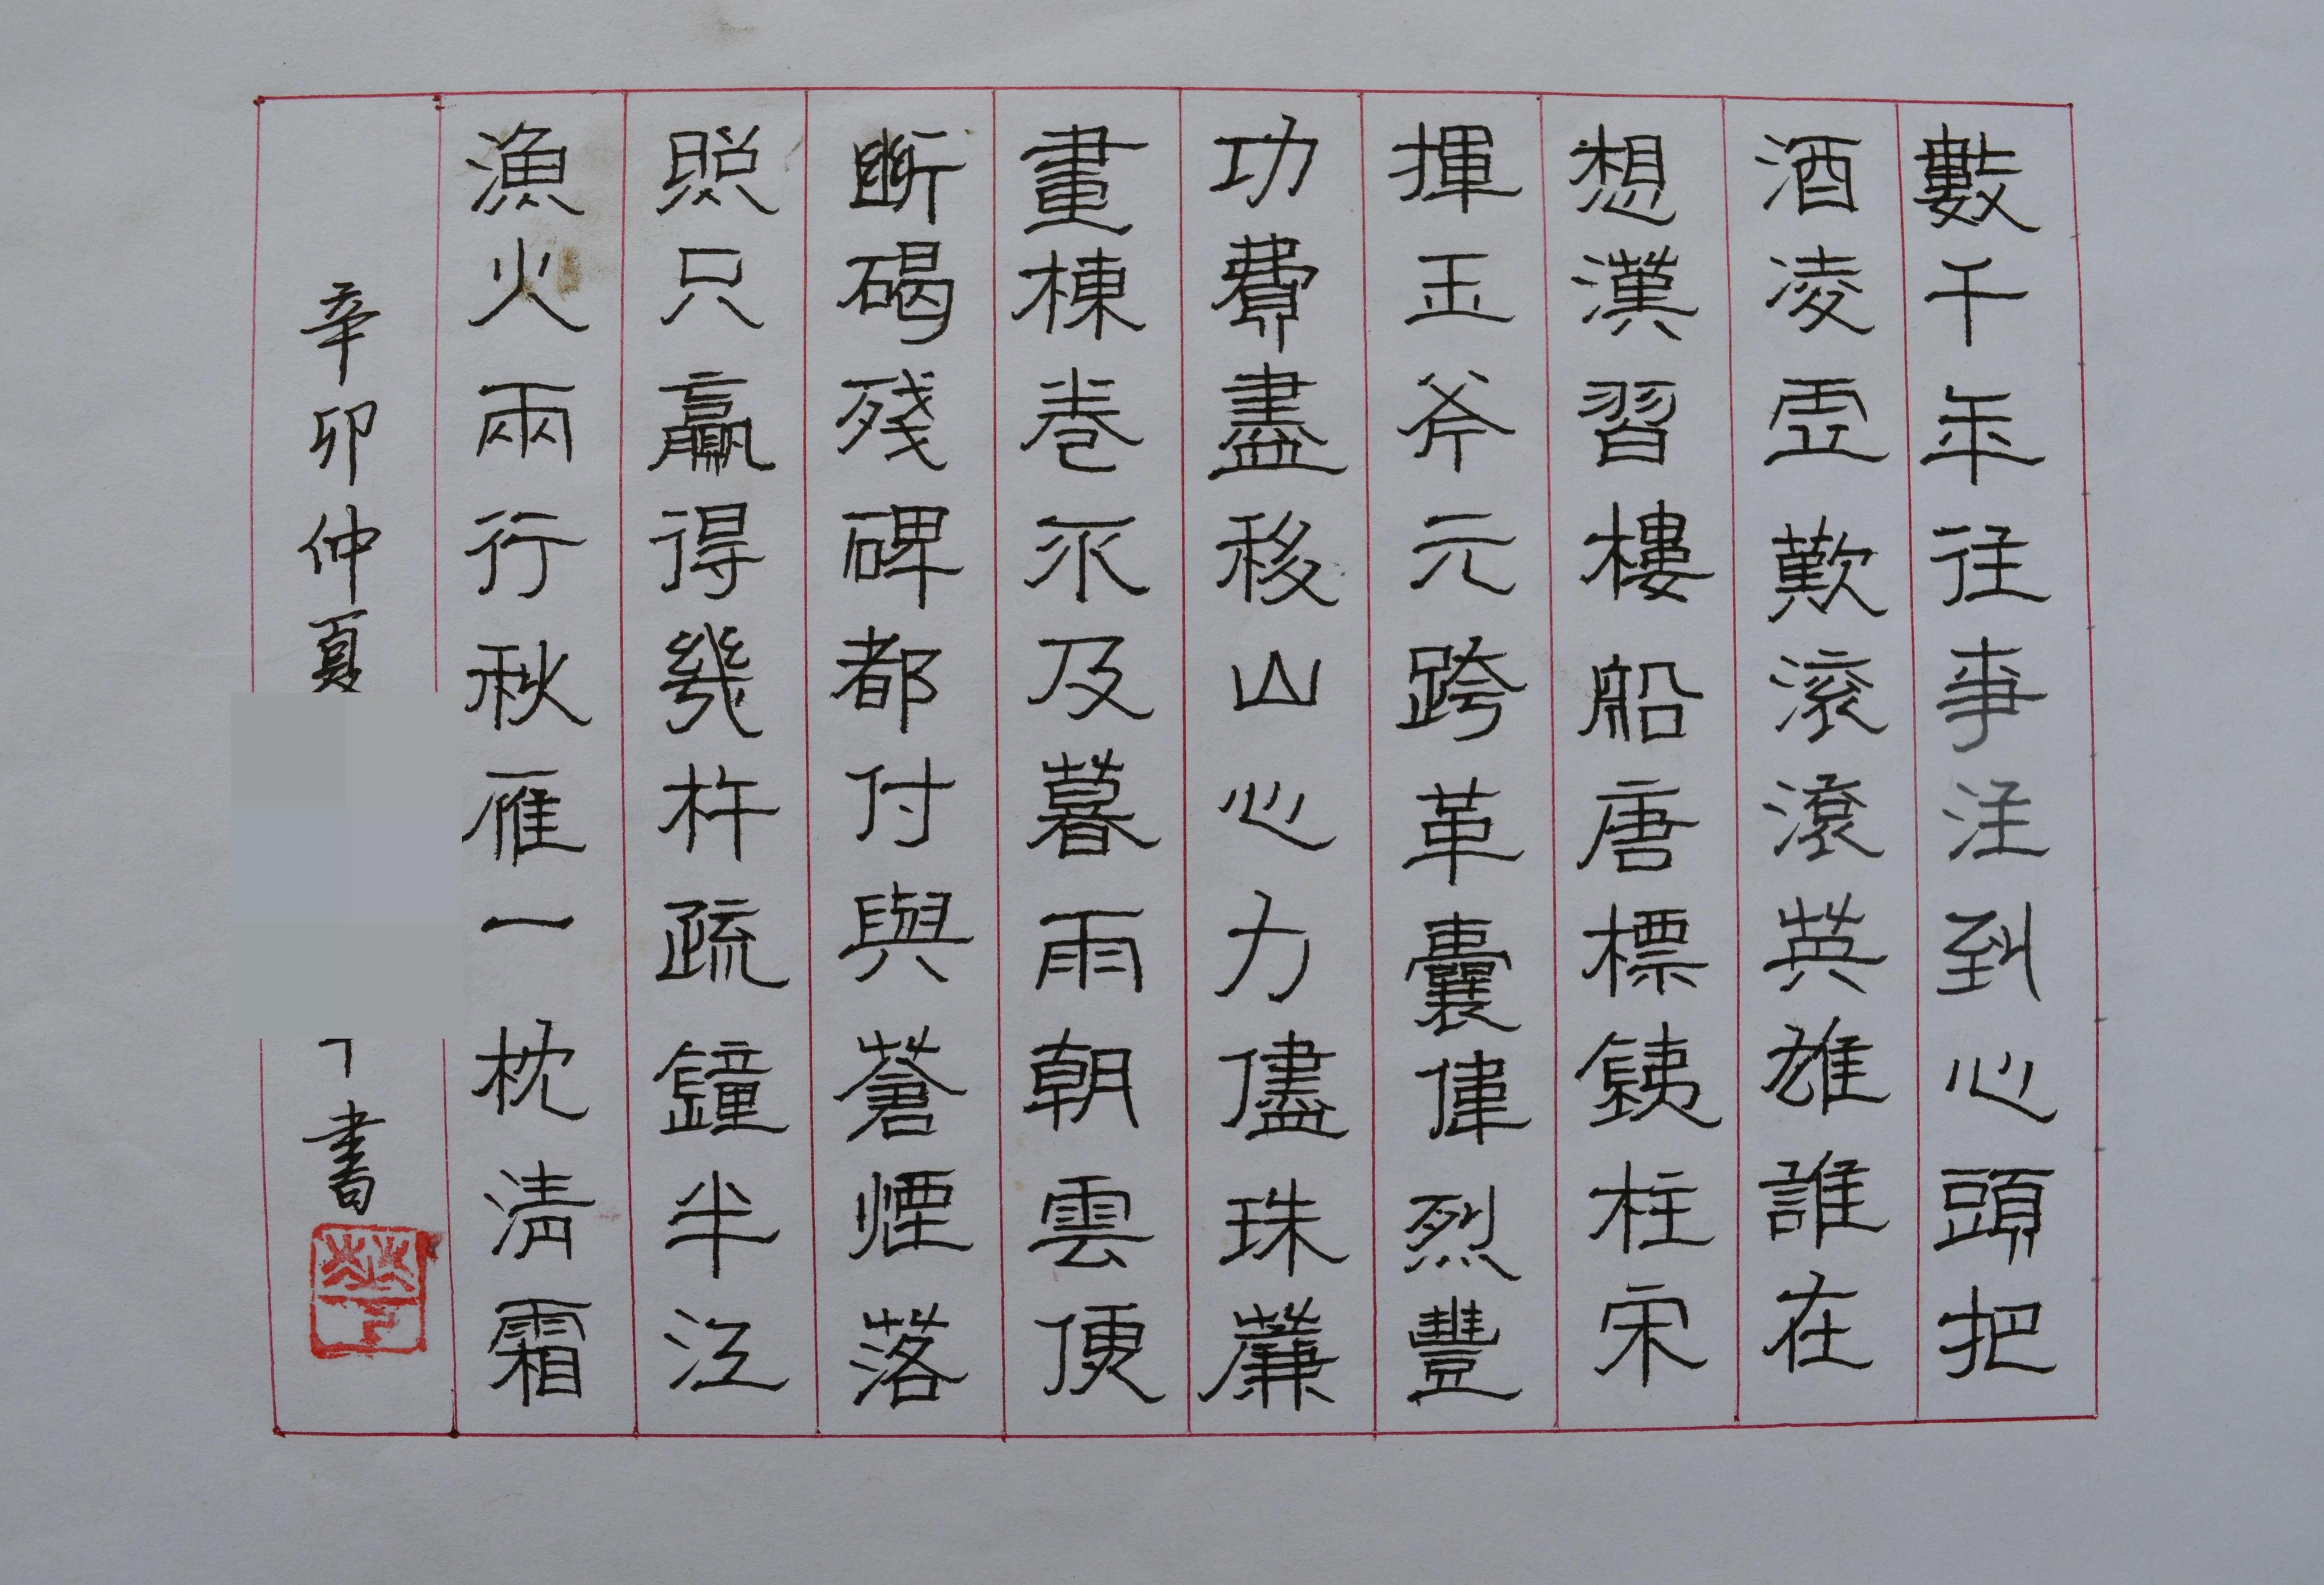 數千年往事注到心頭把
酒凌虛歎滾滾英雄誰在
想漢習樓船唐標鐵柱宋
揮玉斧元跨革囊偉烈豐
功費盡移山心力儘珠簾
畫棟卷不及暮雨朝雲便
斷碣殘碑都付與蒼煙落
照只贏得幾杵疏鐘半江
漁火兩行秋雁一枕清霜
辛卯仲夏
書